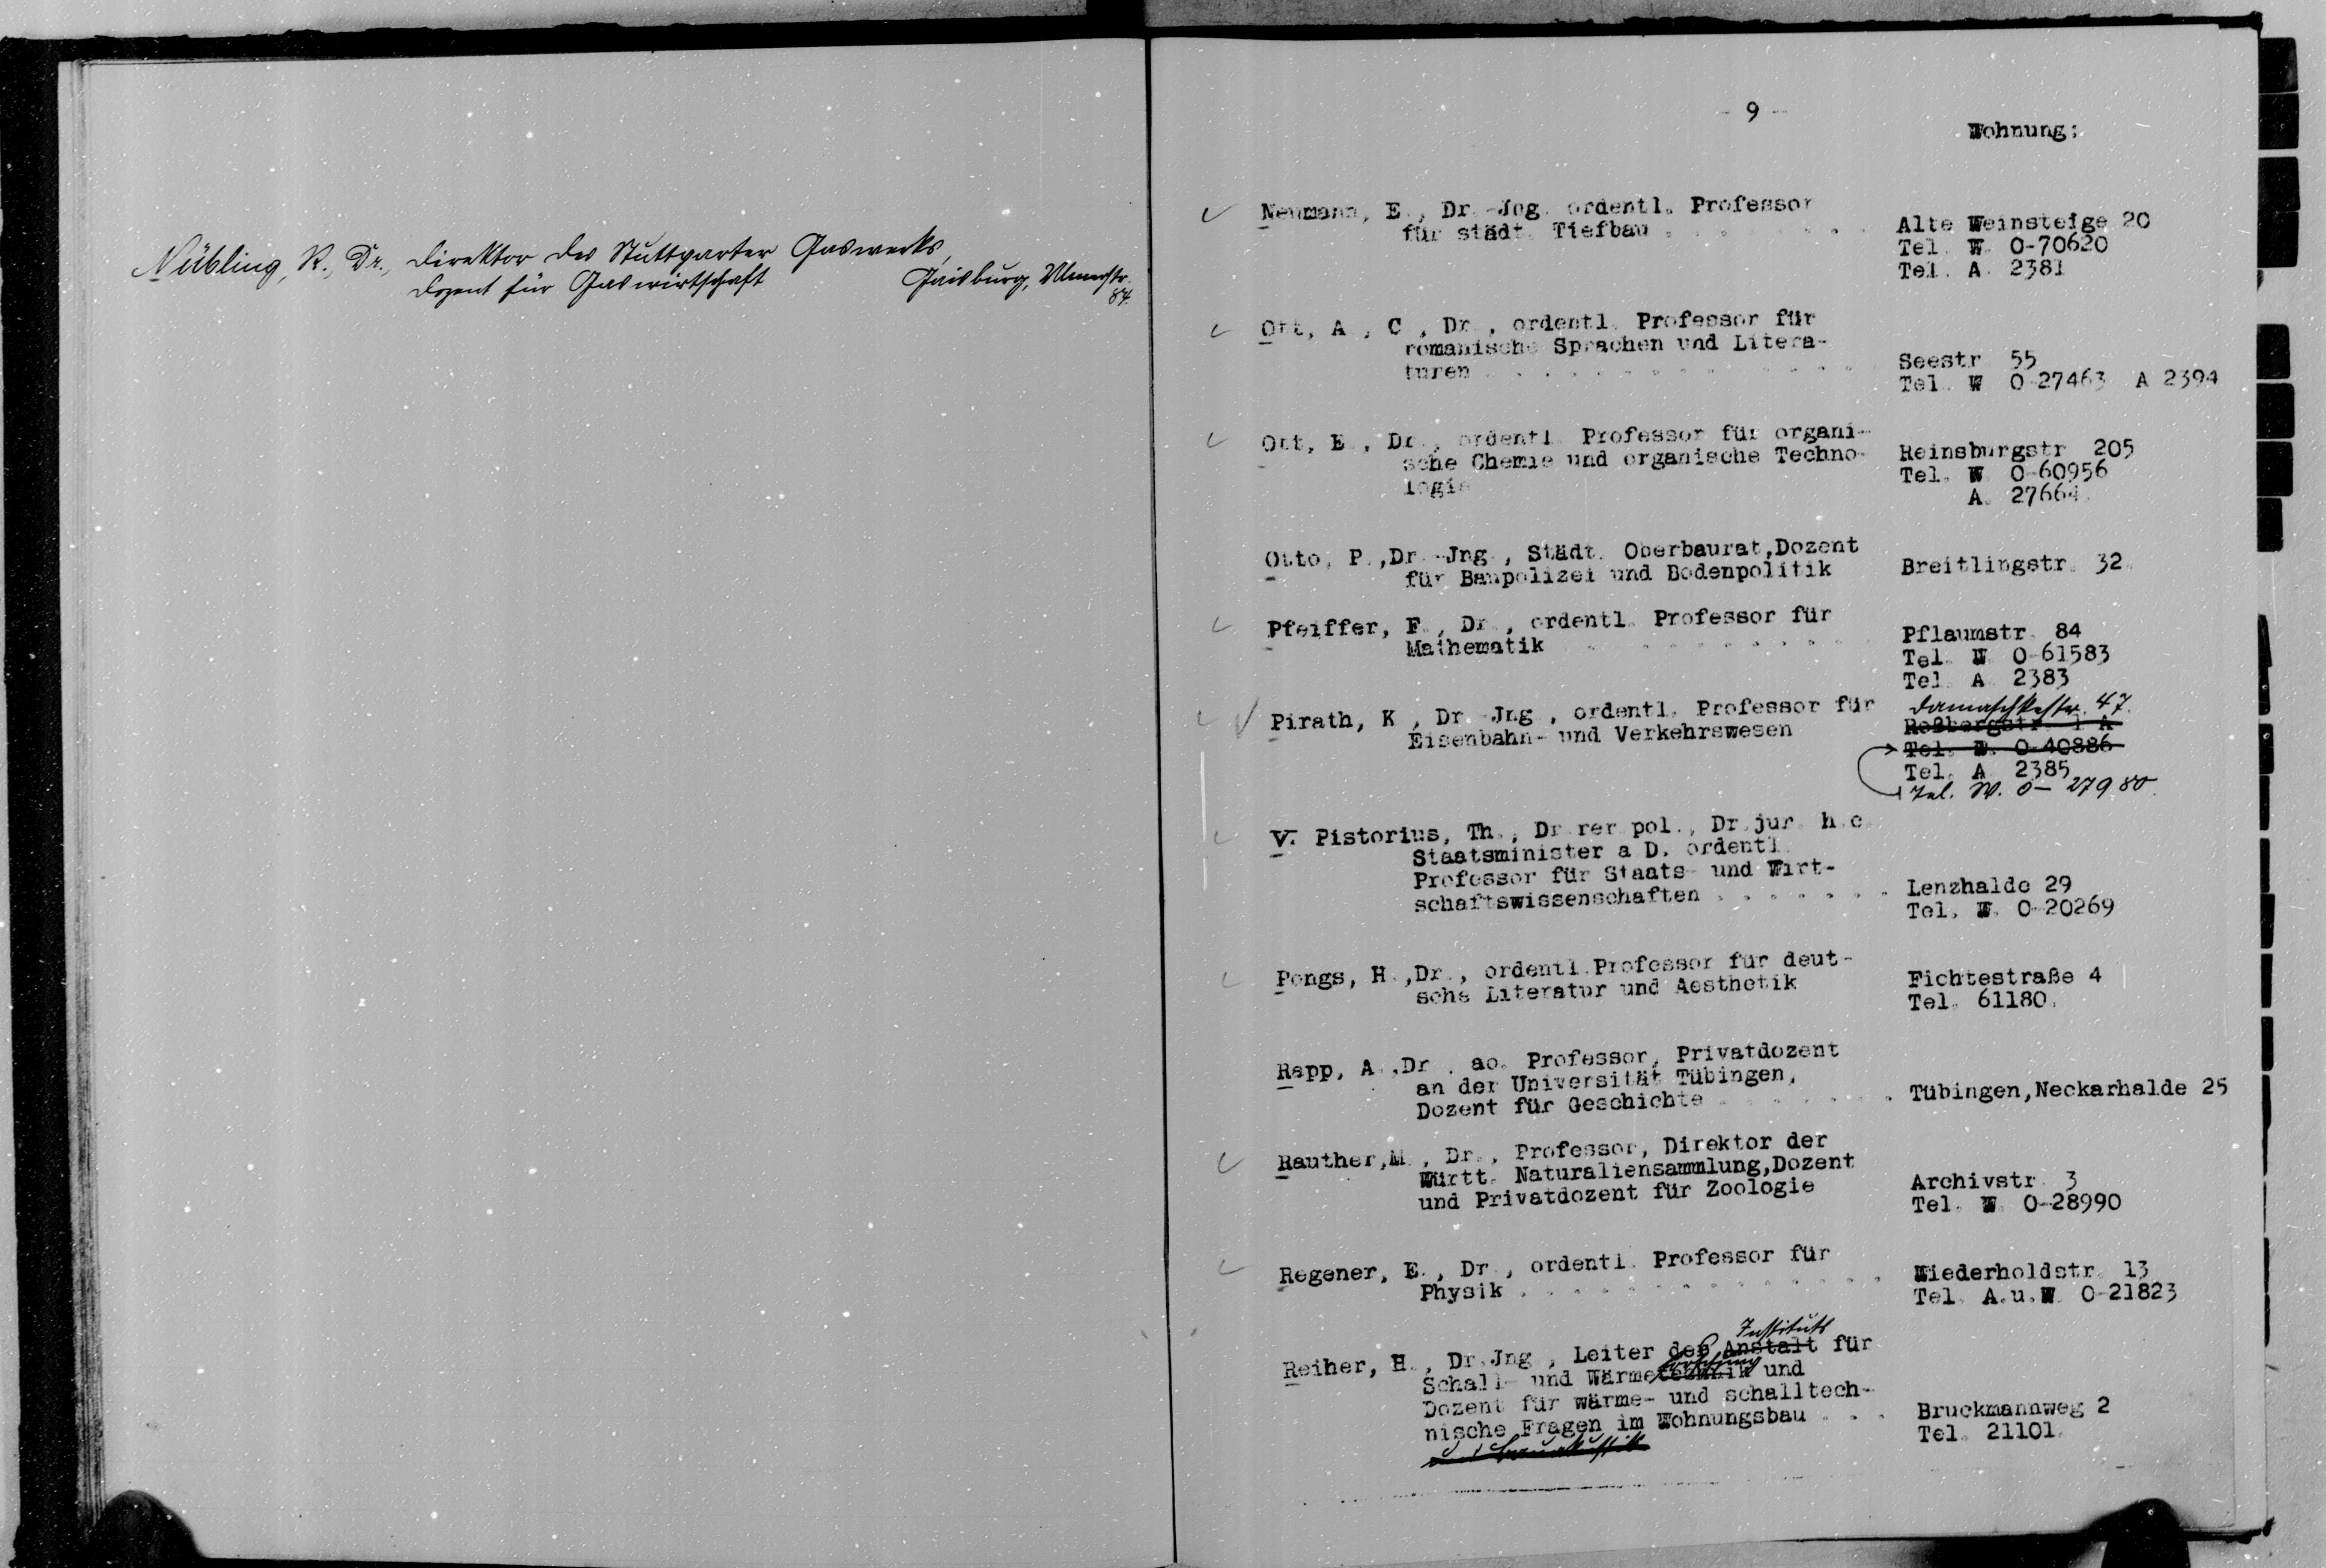 Nübling, R., Dr., Direktor des Stuttgarter Gaswerks,
Dozent für Gaswirtschaft Gaisburg, Ulmerstr.
84.
- 9 -
Wohnung:
Neumann, E., Dr.-Jng. ordentl. Professor
für städt. Tiefbau . . . . . . . . .
Alte Weinsteige 20
Tel. W. 0-70620
Tel. A. 2381
Ott, A., C., Dr., ordentl. Professor für
romanische Sprachen und Litera-
turen . . . . . . . . . . . . . . .
Seestr. 55
Tel. W 0-27463 A 2394
Ott, E., Dr., ordentl. Professor für organi-
sche Chemie und organische Techno-
logie
Reinsburgstr. 205
Tel. W. 0-60956
A. 27664.
Otto, P.,Dr.-Jng., Städt. Oberbaurat,Dozent
für Baupolizei und Bodenpolitik
Breitlingstr. 32.
Pfeiffer, F., Dr., ordentl. Professor für
Mathematik . . . . . . . . . . . .
Pflaumstr. 84
Tel. W. 0-61583
Tel. A 2383
Pirath, K., Dr.-Jng., ordentl. Professor für
Eisenbahn- und Verkehrswesen
Damaschkestr. 47.
Roßbergstr. 1 A
Tel. W. 0-40886
Tel. A 2385
Tel. W. 0-27980.
V. Pistorius, Th., Dr.rer.pol., Dr.jur. h.c.
Staatsminister a.D. ordentl.
Professor für Staats- und Wirt-
schaftswissenschaften . . . . . . .
Lenzhalde 29
Tel. W. 0-20269
Pongs, H.,Dr., ordentl.Professor für deut-
sche Literatur und Aesthetik
Fichtestraße 4
Tel. 61180.
Rapp, A.,Dr., ao. Professor, Privatdozent
an der Universität Tübingen,
Dozent für Geschichte . . . . . . . .
Tübingen,Neckarhalde 25
Rauther,M., Dr., Professor, Direktor der
Württ. Naturaliensammlung,Dozent
und Privatdozent für Zoologie
Archivstr. 3
Tel. W. 0-28990
Regener, E., Dr., ordentl. Professor für
Physik . . . . . . . . . . . . . .
Wiederholdstr. 13
Tel. A.u.W. 0-21823
Instituts
Reiher, H., Dr.Jng., Leiter des Anstalt für
forschung
Schall- und Wärmetechnik und
Dozent für wärme- und schalltech-
nische Fragen im Wohnungsbau . . .
Bruckmannweg 2
Tel. 21101.